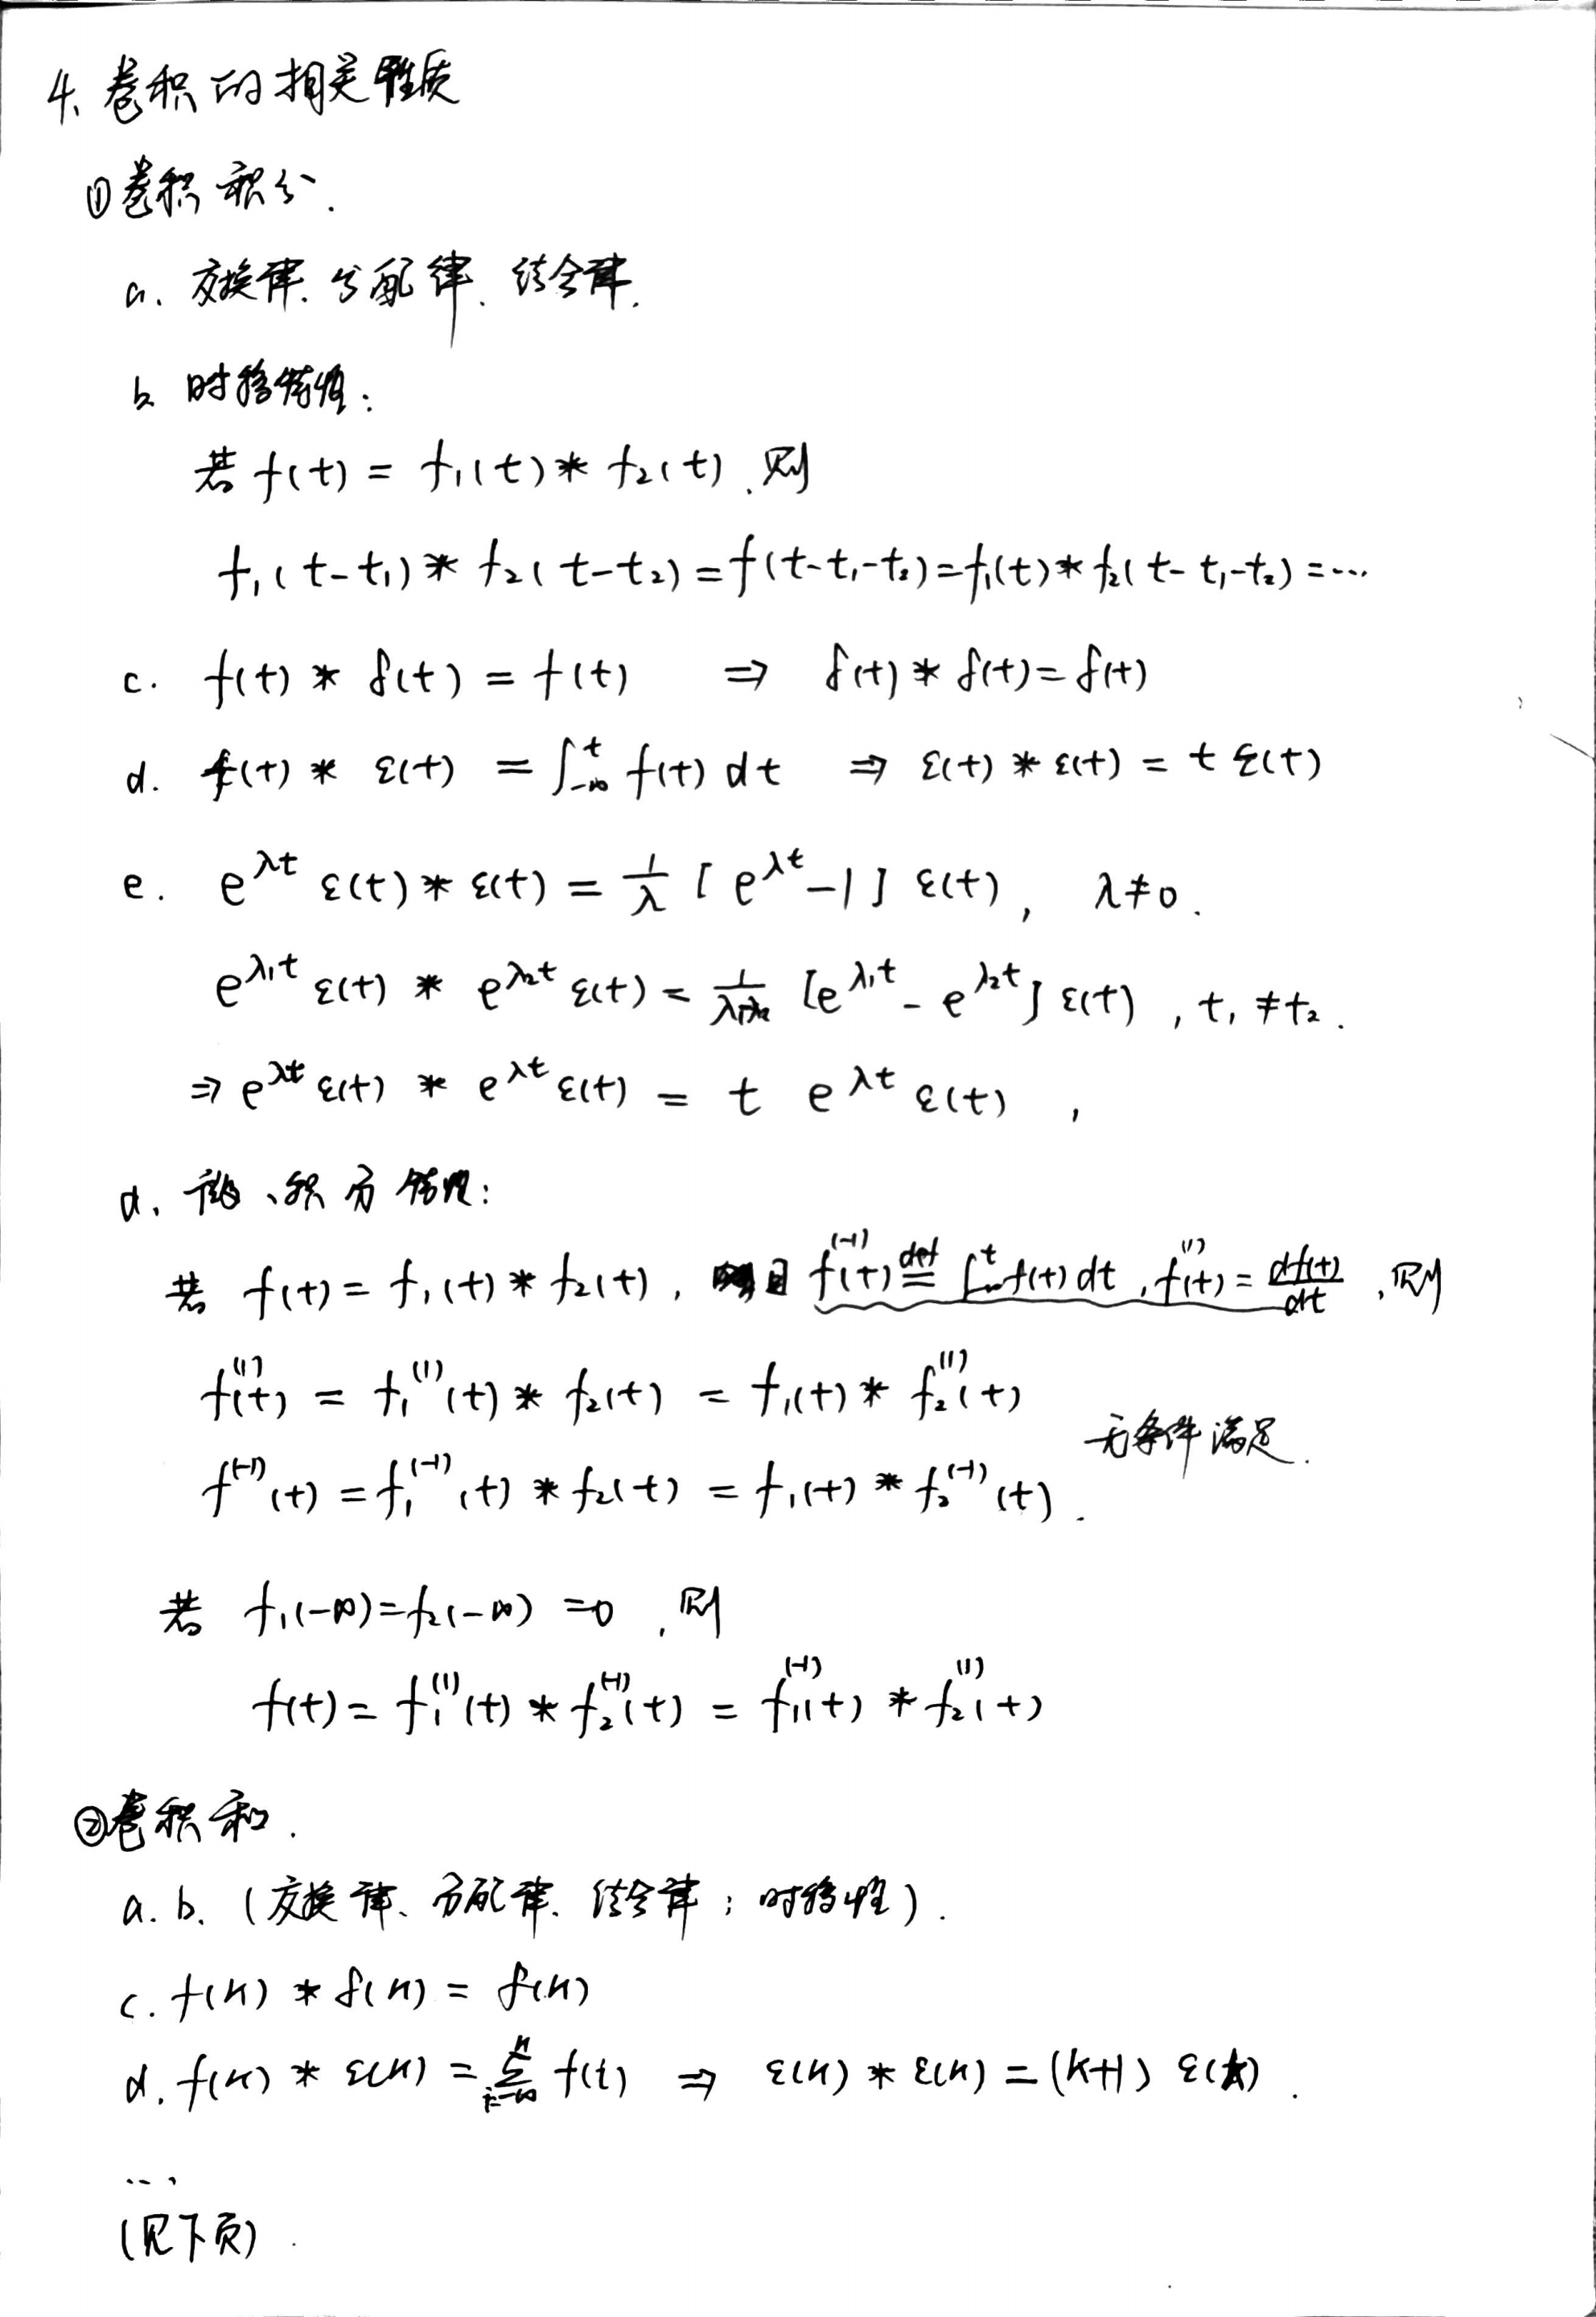 4、卷积的相关性质
①卷积积分.
a. 交换律、分配律、结合律.
b. 时移特性:
若 f(t) = f₁(t) * f₂(t), 则
f₁(t-t₁) * f₂(t-t₂) = f(t-t₁-t₂) = f₁(t) * f₂(t-t₁-t₂) = ...
c. f(t) * δ(t) = f(t) ⇒ δ(t) * δ(t) = δ(t)
d. f(t) * ε(t) = ∫_{-∞}^{t} f(t) dt ⇒ ε(t) * ε(t) = t ε(t)
e. e^{λt} ε(t) * ε(t) = 1/λ [e^{λt} - 1] ε(t), λ≠0.
e^{λ₁t} ε(t) * e^{λ₂t} ε(t) = 1/(λ₁-λ₂) [e^{λ₁t} - e^{λ₂t}] ε(t), t₁≠t₂.
⇒ e^{λt} ε(t) * e^{λt} ε(t) = t e^{λt} ε(t),
d. 微、积分特性:
若 f(t) = f₁(t) * f₂(t), 且 f^{(-1)}(t) ≝ ∫_{-∞}^{t} f(t) dt, f^{(1)}(t) = df(t)/dt, 则
f^{(1)}(t) = f₁^{(1)}(t) * f₂(t) = f₁(t) * f₂^{(1)}(t)
无条件满足.
f^{(-1)}(t) = f₁^{(-1)}(t) * f₂(t) = f₁(t) * f₂^{(-1)}(t).
若 f₁(-∞) = f₂(-∞) = 0, 则
f(t) = f₁^{(1)}(t) * f₂^{(-1)}(t) = f₁^{(-1)}(t) * f₂^{(1)}(t)
②卷积和.
a. b. (交换律、分配律、结合律; 时移性).
c. f(k) * δ(k) = f(k)
d. f(k) * ε(k) = ∑_{i=-∞}^{k} f(i) ⇒ ε(k) * ε(k) = (k+1) ε(k).
...、
(见下页).